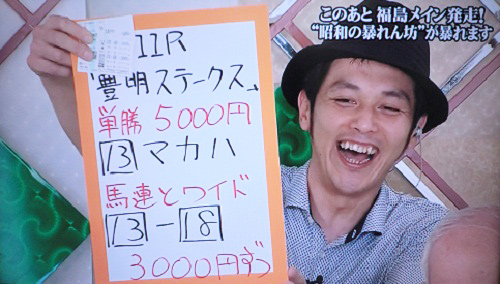 このあと 福島メイン発走!
“昭和の暴れん坊”が暴れます
11R
「豊明ステークス」
単勝 5000円
13 マカハ
馬連とワイド
13-18
3000円ずつ